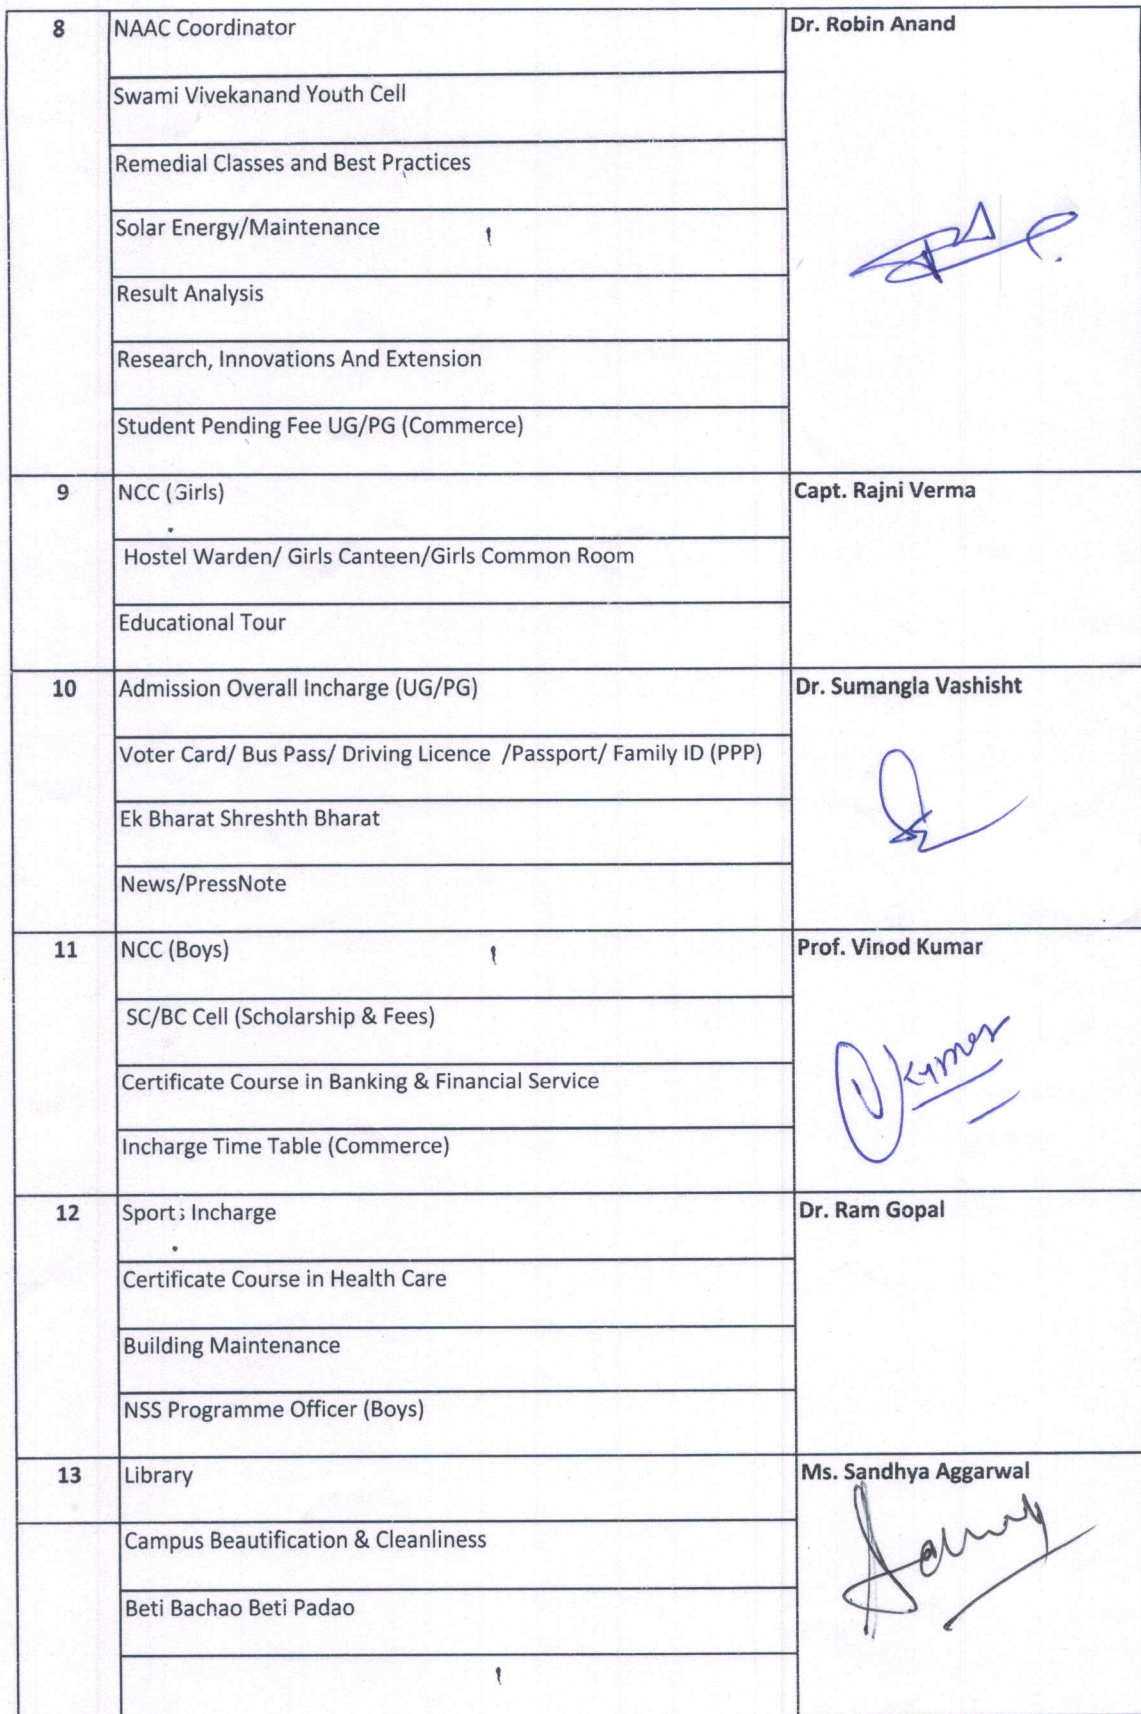 8 NAAC Coordinator Dr. Robin Anand
Swami Vivekanand Youth Cell
Remedial Classes and Best Practices
Solar Energy/Maintenance
Result Analysis
Research, Innovations And Extension
Student Pending Fee UG/PG (Commerce)
9 NCC (Girls) Capt. Rajni Verma
Hostel Warden/ Girls Canteen/Girls Common Room
Educational Tour
10 Admission Overall Incharge (UG/PG) Dr. Sumangla Vashisht
Voter Card/ Bus Pass/ Driving Licence /Passport/ Family ID (PPP)
Ek Bharat Shreshth Bharat
News/PressNote
11 NCC (Boys) Prof. Vinod Kumar
SC/BC Cell (Scholarship & Fees)
VKumar
Certificate Course in Banking & Financial Service
Incharge Time Table (Commerce)
12 Sports Incharge Dr. Ram Gopal
Certificate Course in Health Care
Building Maintenance
NSS Programme Officer (Boys)
13 Library Ms. Sandhya Aggarwal
Campus Beautification & Cleanliness
Beti Bachao Beti Padao